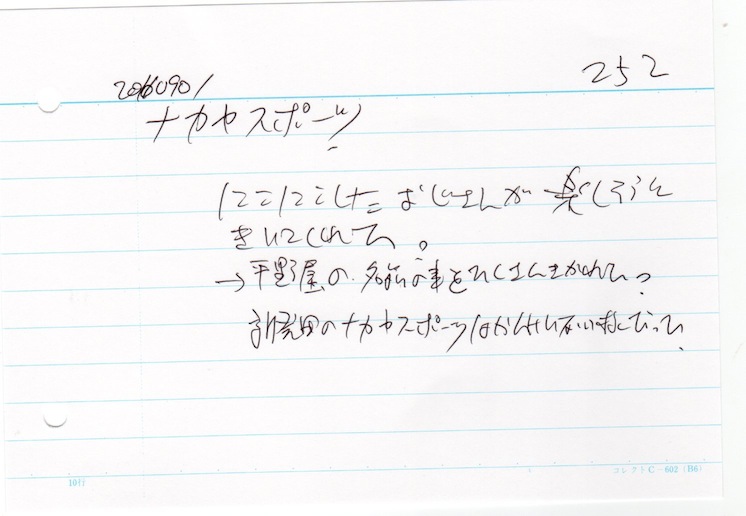 252
20160901
ナカヤスポーツ
にこにこした おじいさんが 楽しそうに
きいてくれて。
→平野屋の 名前の事をたくさんきかれて?
新発田のナカヤスポーツは かんけいないみたいだって
10行 コレクトC-602(B6)